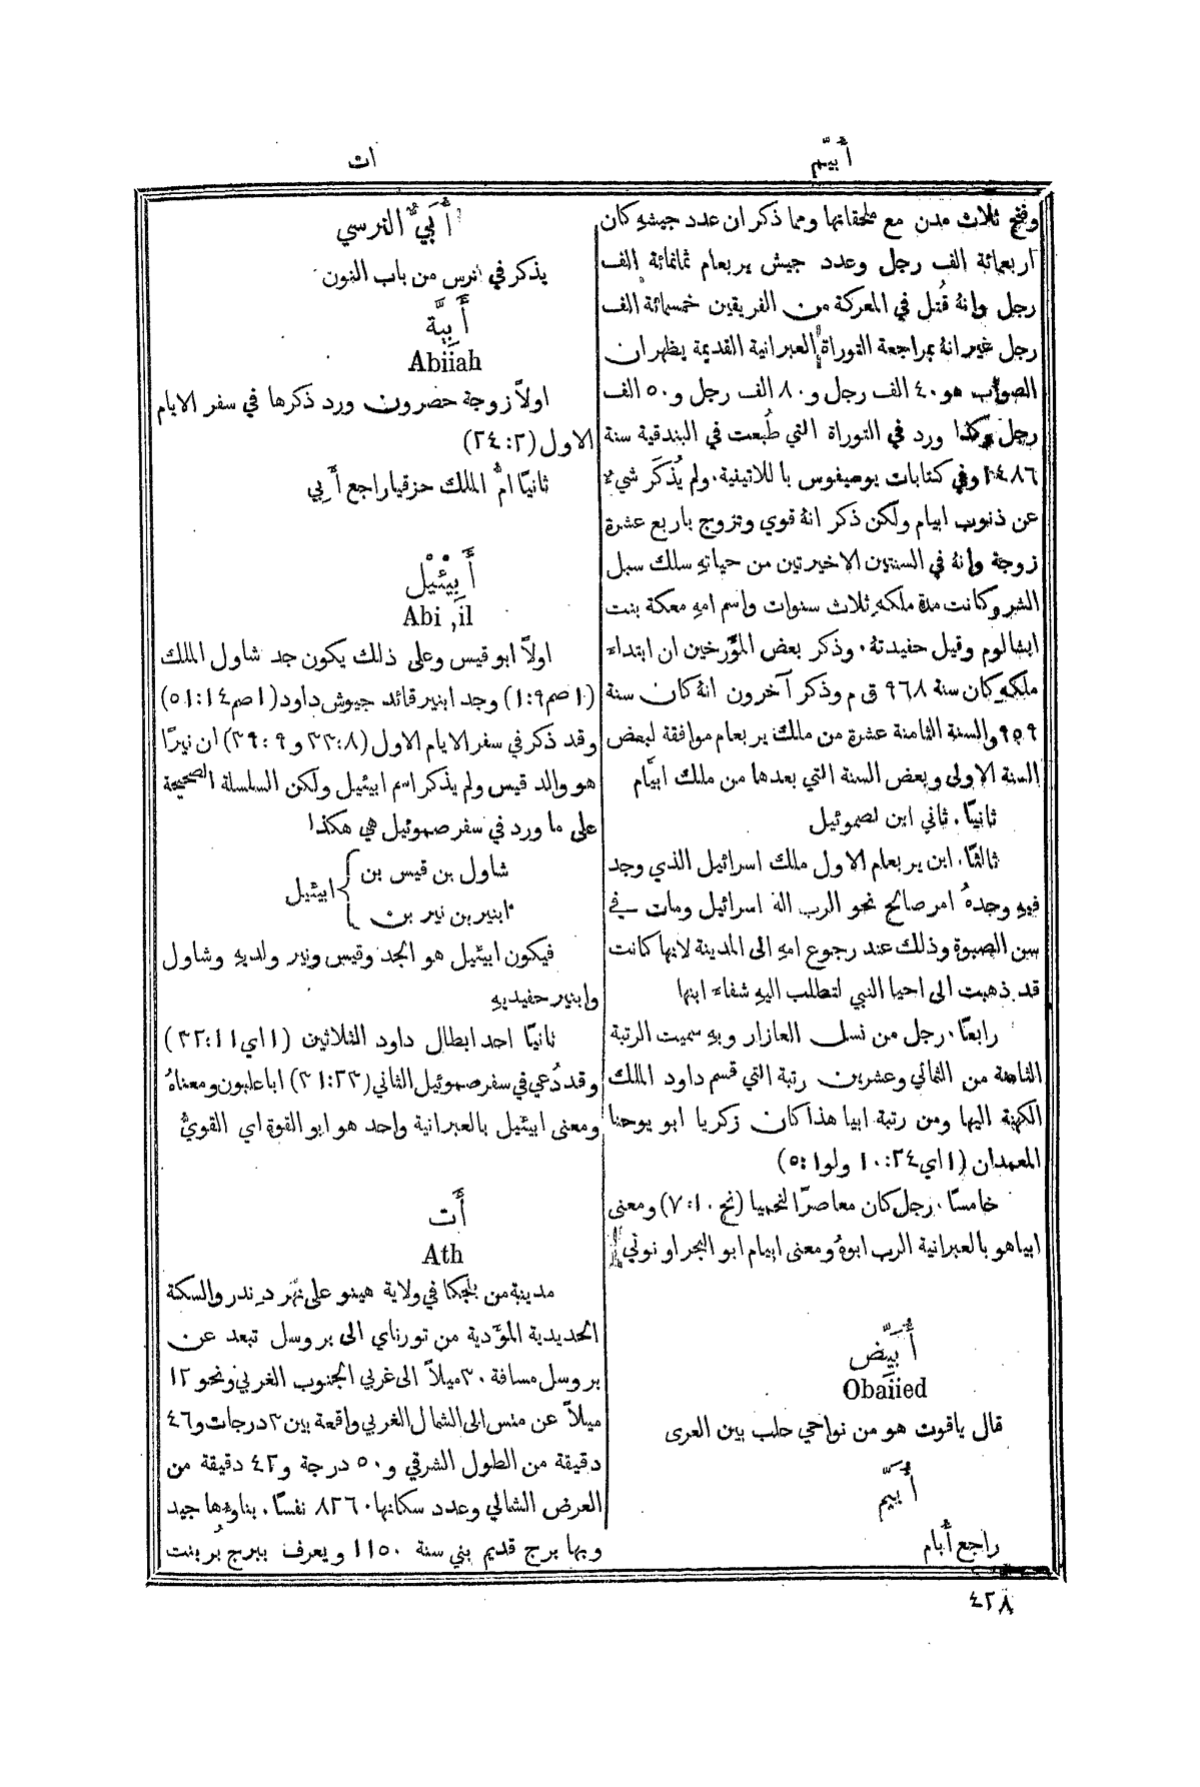 أُبَيّم
ات
وفتح ثلاث مدن مع ملحقاتها ومما ذكر ان عدد جيشهِ كان
اربعمائة الف رجل وعدد جيش يربعام ثمانمائة الف
رجل وانهُ قُتل في المعركة من الفريقين خمسمائة الف
رجل غير انهُ بمراجعة التوراة العبرانية القديمة يظهر ان
الصواب هو ٤٠ الف رجل و٨٠ الف رجل و٥٠ الف
رجل وكذا ورد في التوراة التي طُبعت في البندقية سنة
١٤٨٦ وفي كتابات يوسيفوس باللاتينية. ولم يُذكَر شيء
عن ذنوب ابيام ولكن ذكر انهُ قوي وتزوج باربع عشرة
زوجة وانهُ في السنتين الاخيرتين من حياتهِ سلك سبل
الشر وكانت مدة ملكهِ ثلاث سنوات واسم امهِ معكة بنت
ابشالوم وقيل حفيدتهُ. وذكر بعض المؤرخين ان ابتداء
ملكهِ كان سنة ٩٦٨ ق م وذكر آخرون انهُ كان سنة
٩٥٩ والسنة الثامنة عشرة من ملك يربعام موافقة لبعض
السنة الاولى وبعض السنة التي بعدها من ملك ابيّام
ثانيًا. ثاني ابن لصموئيل
ثالثًا. ابن يربعام الاول ملك اسرائيل الذي وجد
فيهِ وحدهُ امر صالح نحو الرب اله اسرائيل ومات في
سن الصبوة وذلك عند رجوع امهِ الى المدينة لانها كانت
قد ذهبت الى احيا النبي لتطلب اليهِ شفاء ابنها
رابعًا. رجل من نسل العازار وبهِ سميت الرتبة
الثامنة من الثماني وعشرين رتبة التي قسم داود الملك
الكهنة اليها ومن رتبة ابيا هذا كان زكريا ابو يوحنا
المعمدان (١ اي ٢٤: ١٠ ولو ١: ٥)
خامسًا. رجل كان معاصرًا لنحميا (نح ١٠: ٧) ومعنى
ابياهو بالعبرانية الرب ابوهُ ومعنى ابيام ابو البحر او نوتي
أُبَيّض
Obaiied
قال ياقوت هو من نواحي حلب بين العرى
أُبَيّم
راجع أُبام
أُبَيّ النرسي
يذكر في نرس من باب النون
أَبِيَّة
Abiiah
اولاً زوجة حضرون ورد ذكرها في سفر الايام
الاول (٢: ٢٤)
ثانيًا ام الملك حزقيا راجع أَبي
أَبِيْئيل
Abi ,il
اولاً ابو قيس وعلى ذلك يكون جد شاول الملك
(١ صم ٩: ١) وجد ابنير قائد جيوش داود (١ صم ١٤: ٥١)
وقد ذكر في سفر الايام الاول (٨: ٣٣ و٩: ٣٩) ان نيرًا
هو والد قيس ولم يذكر اسم ابيئيل ولكن السلسلة الصحيحة
على ما ورد في سفر صموئيل هي هكذا
شاول بن قيس بن
ابيئيل
ابنير بن نير بن
فيكون ابيئيل هو الجد وقيس ونير ولديهِ وشاول
وابنير حفيديهِ
ثانيًا احد ابطال داود الثلاثين (١ اي ١١: ٣٢)
وقد دُعي في سفر صموئيل الثاني (٢٣: ٣١) ابا علبون ومعناهُ
ومعنى ابيئيل بالعبرانية واحد هو ابو القوة اي القوي
أَت
Ath
مدينة من بلجكا في ولاية هينو على نهر دندر والسكة
الحديدية المؤدية من تورناي الى بروسل تبعد عن
بروسل مسافة ٣٠ ميلاً الى غربي الجنوب الغربي ونحو ١٢
ميلاً عن منس الى الشمال الغربي واقعة بين ٣ درجات و٤٦
دقيقة من الطول الشرقي و٥٠ درجة و٤٢ دقيقة من
العرض الشمالي وعدد سكانها ٨٢٦٠ نفسًا. بناؤها جيد
وبها برج قديم بني سنة ١١٥٠ ويعرف ببرج بُربنت
٤٢٨